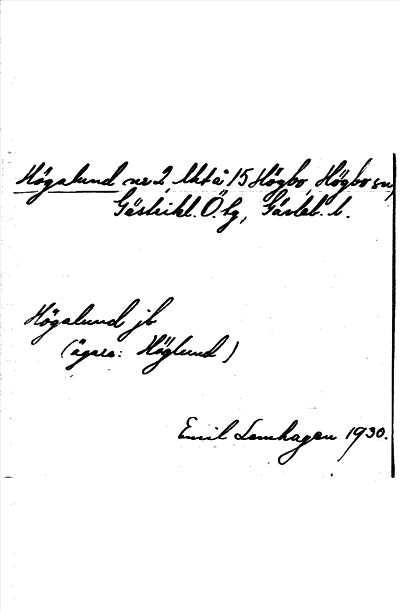 Högalund nr 2, Mtå 15 Högbo, Högbo sn,
Gästrikl. Ö. tg, Gävleb. l.
Högalund jb
(ägare: Höglund)
Emil Lenhagen 1930.